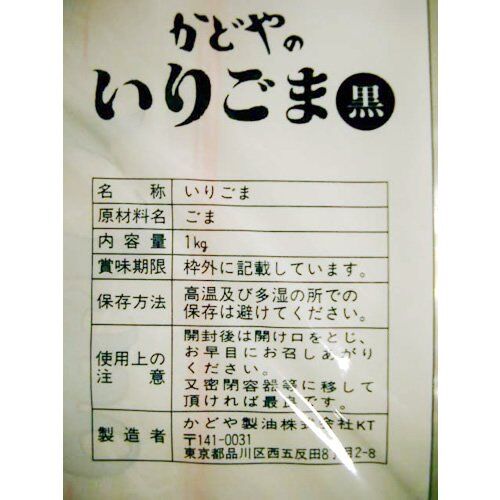 かどやの
いりごま 黒
名称 いりごま
原材料名 ごま
内容量 1kg
賞味期限 枠外に記載しています。
保存方法 高温及び多湿の所での
保存は避けてください。
使用上の注意 開封後は開け口をとじ、
お早目にお召しあがり
ください。
又密閉容器等に移して
頂ければ最良です。
製造者 かどや製油株式会社KT
〒141-0031
東京都品川区西五反田8丁目2-8